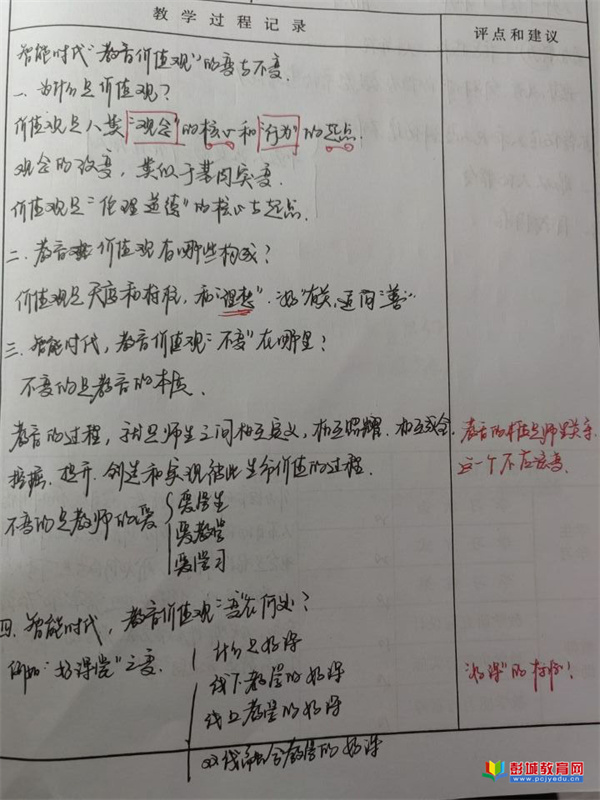 教学过程记录
评点和建议
智能时代"教育价值观"的变与不变.
一. 为什么是价值观?
价值观是人类"观念"的核心和"行为"的起点.
观念的改变, 类似于基因突变.
价值观是"伦理道德"的核心与起点.
二. 教育价值观有哪些构成?
价值观是天底和村柱, 和"理想".
三. 智能时代, 教育价值观"不变"在哪里?
不变的是教育的本质.
教育的过程, 就是师生之间相互定义, 相互照耀. 相互成全.
教育的本质是师生关系.
挖掘. 提升. 创造和实现彼此生命价值的过程.
这一个不应该变.
不变的是教师的爱
爱学生
爱教学
爱学习
四. 智能时代, 教育价值观"变"在何处?
例如"好课堂"之变.
什么是好课
线下教学的好课
"好课"的标准!
线上教学的好课
双线融合教学的好课
彭城教育网
www.pcjyedu.cn